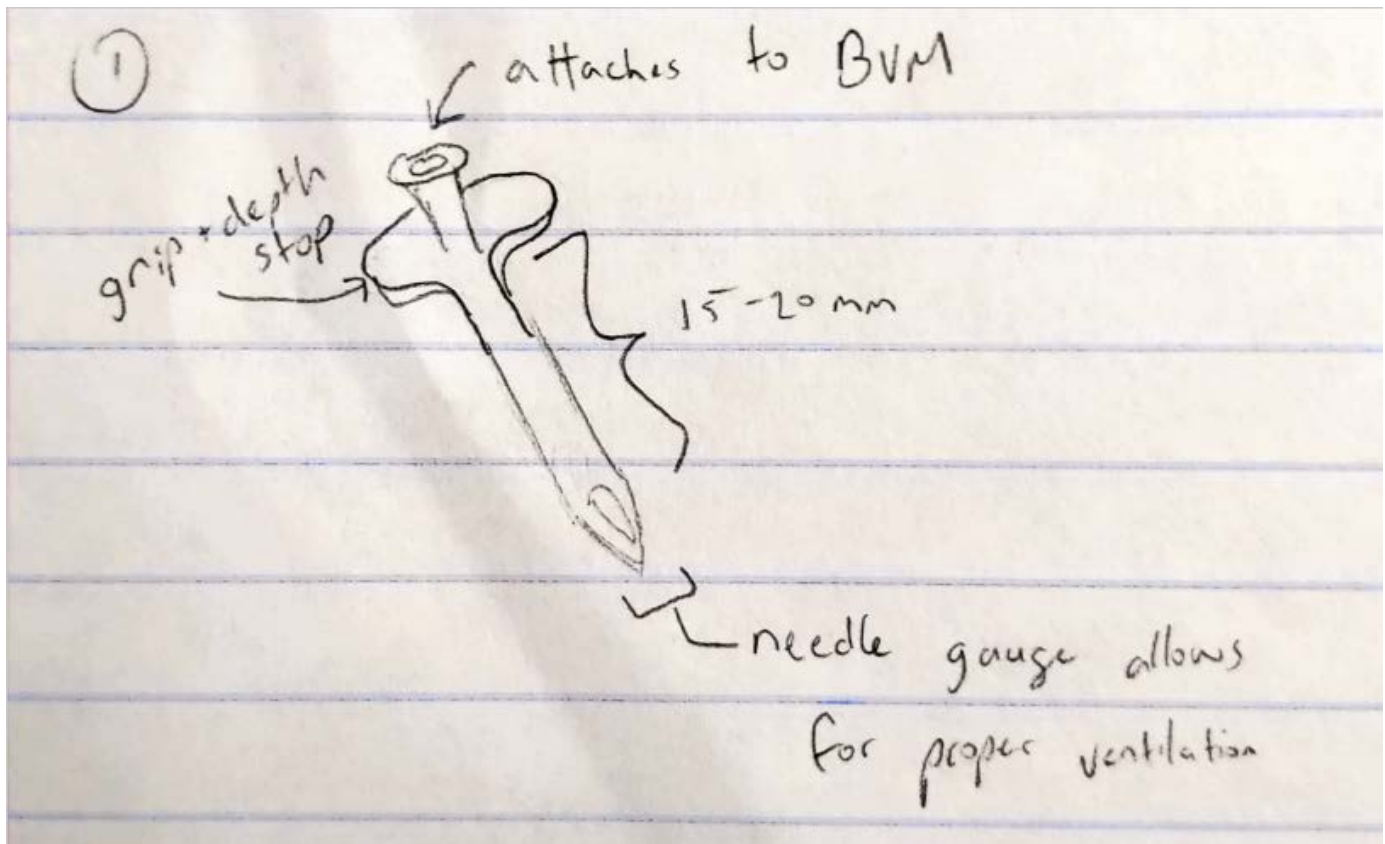 1
attaches to BVM
grip + depth
stop
15-20 mm
needle gauge allows
for proper ventilation